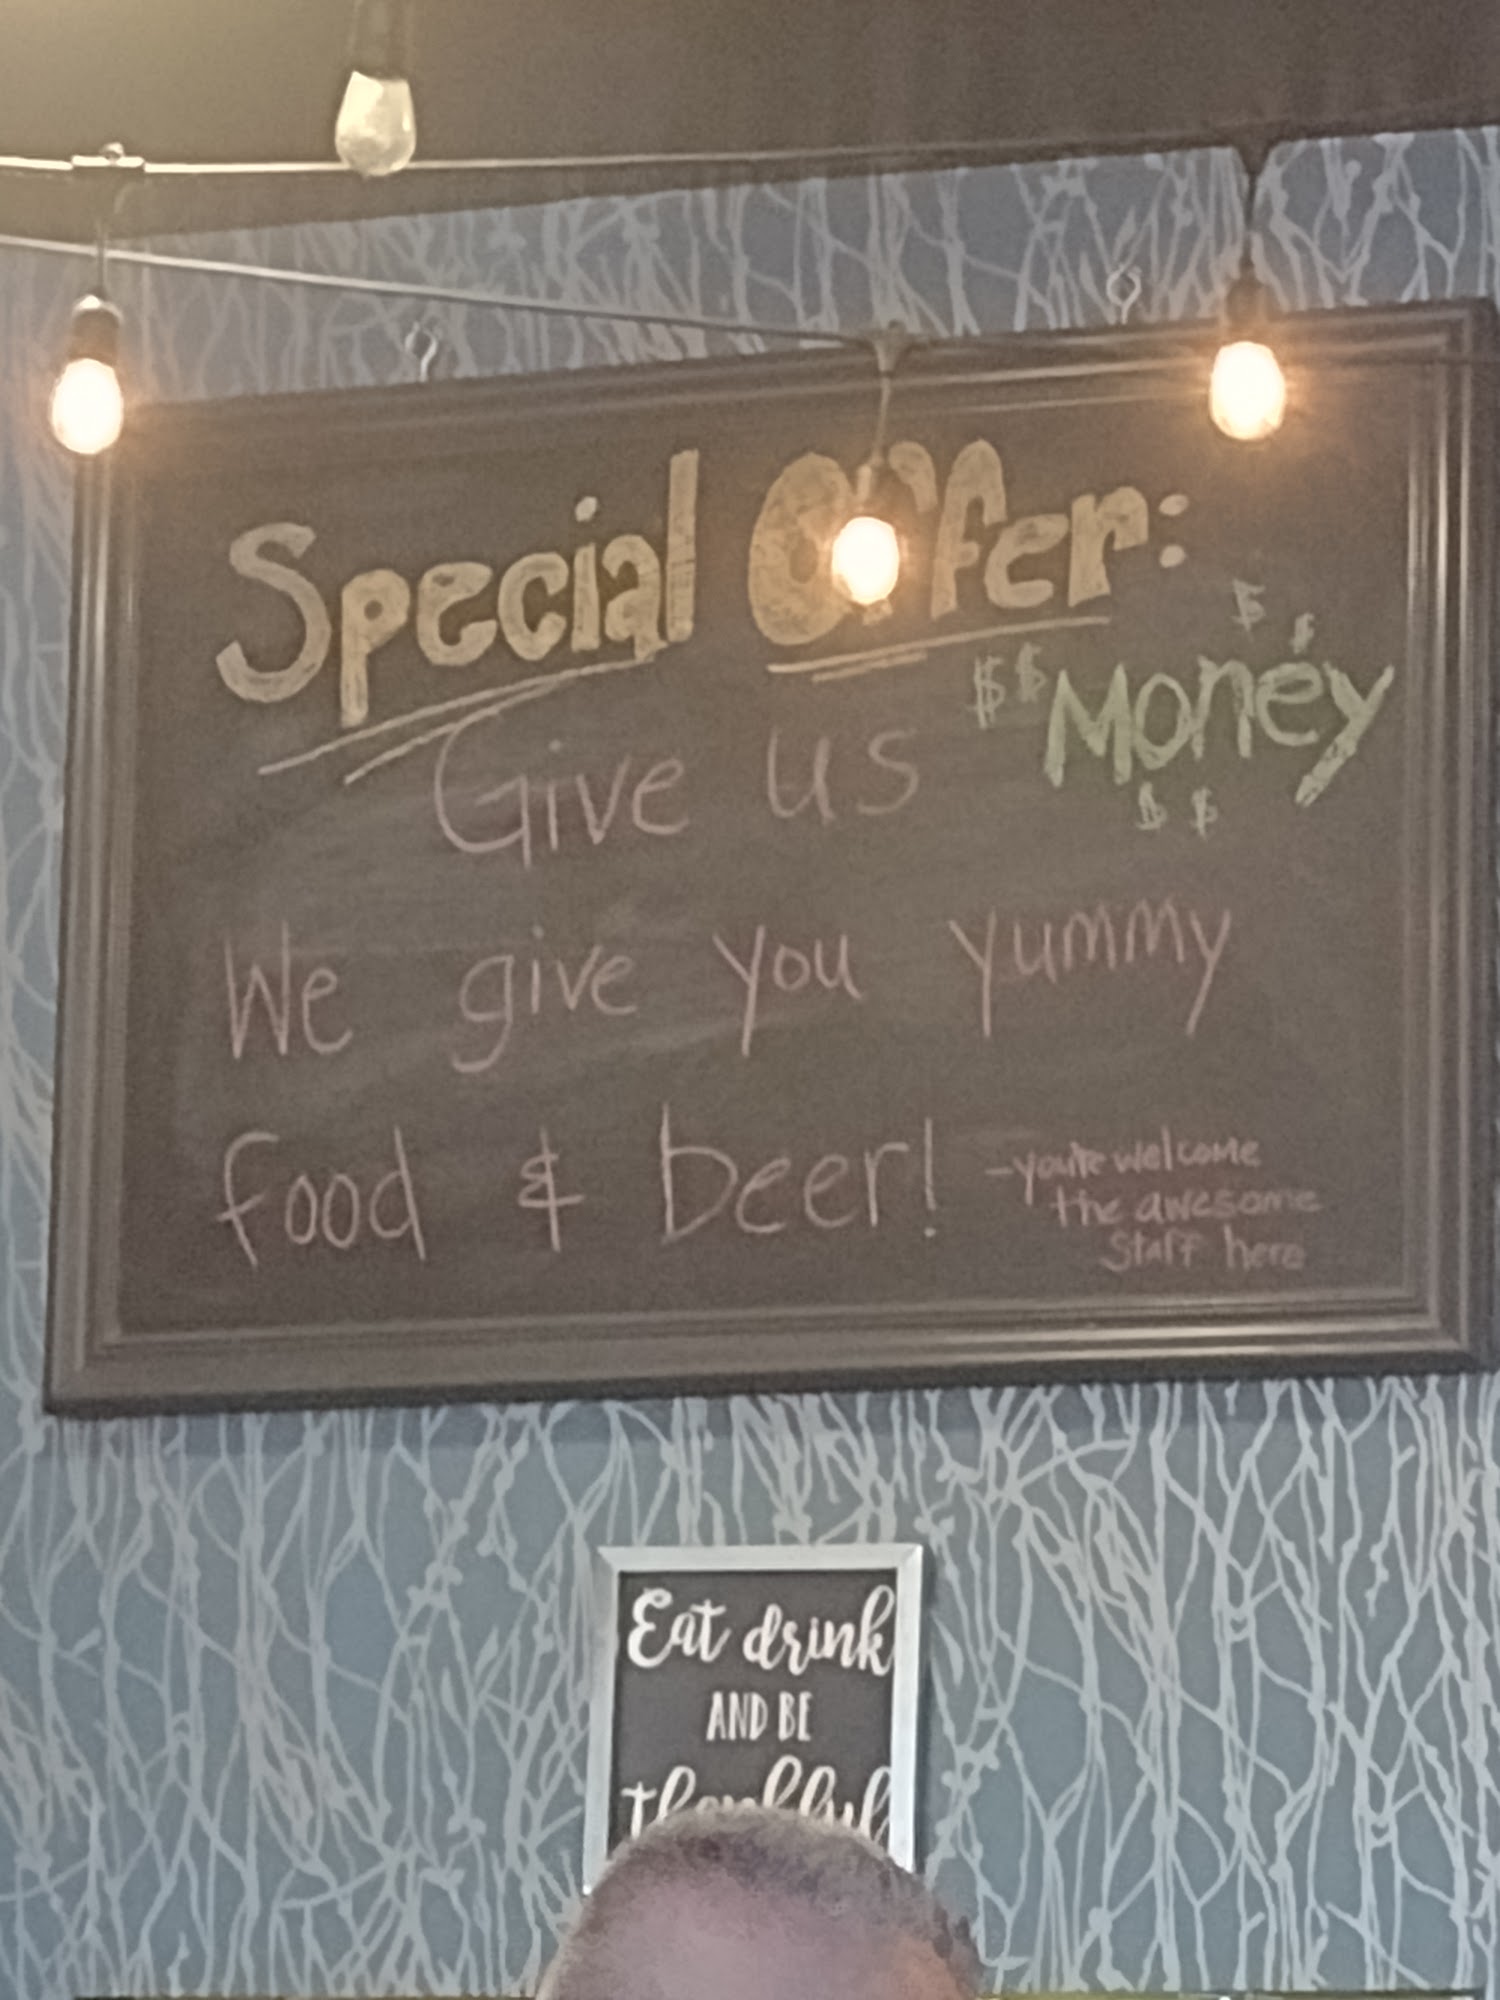 Special Offer:
Give us $$ Money $ $ $ $
We give you yummy
food & beer!
-you're welcome
the awesome
staff here
Eat drink
AND BE
thankful